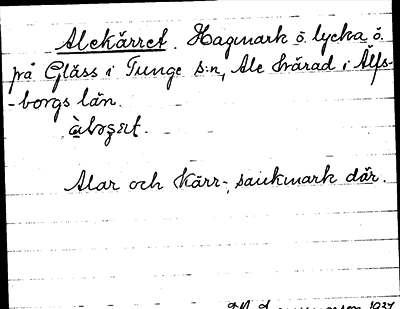 Alekärret. Hagmark ö. lycka ö.
på Gläss i Tunge s:n, Ale härad i Älfs-
-borgs län.
Alar och Kärr-, sankmark där.
1927